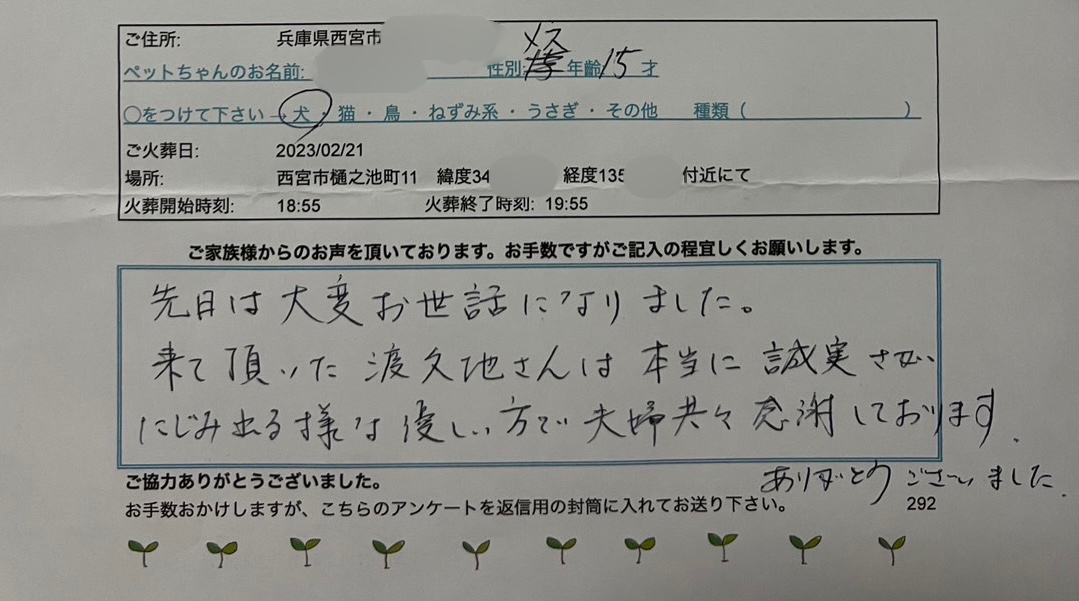 ご住所: 兵庫県西宮市
ペットちゃんのお名前: 性別: メス 年齢 15 才
○をつけて下さい→ 犬 ・ 猫 ・ 鳥 ・ ねずみ系 ・ うさぎ ・ その他 種類 ( )
ご火葬日: 2023/02/21
場所: 西宮市樋之池町11 緯度34 経度135 付近にて
火葬開始時刻: 18:55 火葬終了時刻: 19:55
ご家族様からのお声を頂いております。お手数ですがご記入の程宜しくお願いします。
先日は大変お世話になりました。
来て頂いた渡久地さんは本当に誠実さが
にじみ出る様な優しい方で夫婦共々感謝しております.
ありがとうございました.
ご協力ありがとうございました。
お手数おかけしますが、こちらのアンケートを返信用の封筒に入れてお送り下さい。 292